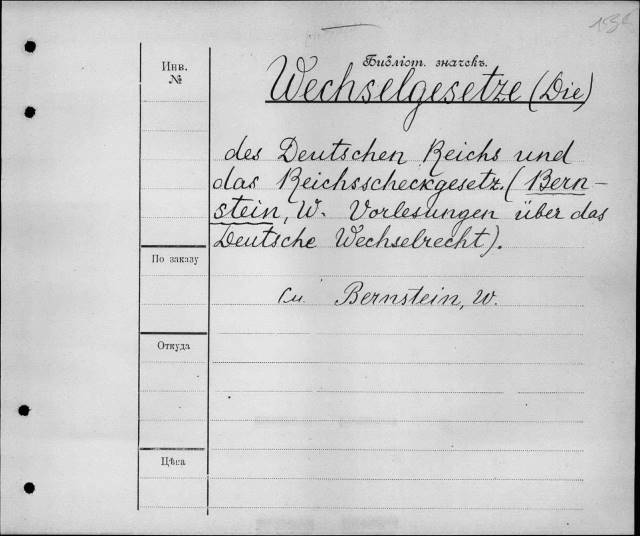 Инв.
№
Библіот. значекъ.
Wechselgesetze (Die)
des Deutschen Reichs und
das Reichsscheckgesetz. (Bern-
stein, W. Vorlesungen über das
Deutsche Wechselrecht).
См. Bernstein, W.
По заказу
Откуда
Цѣна